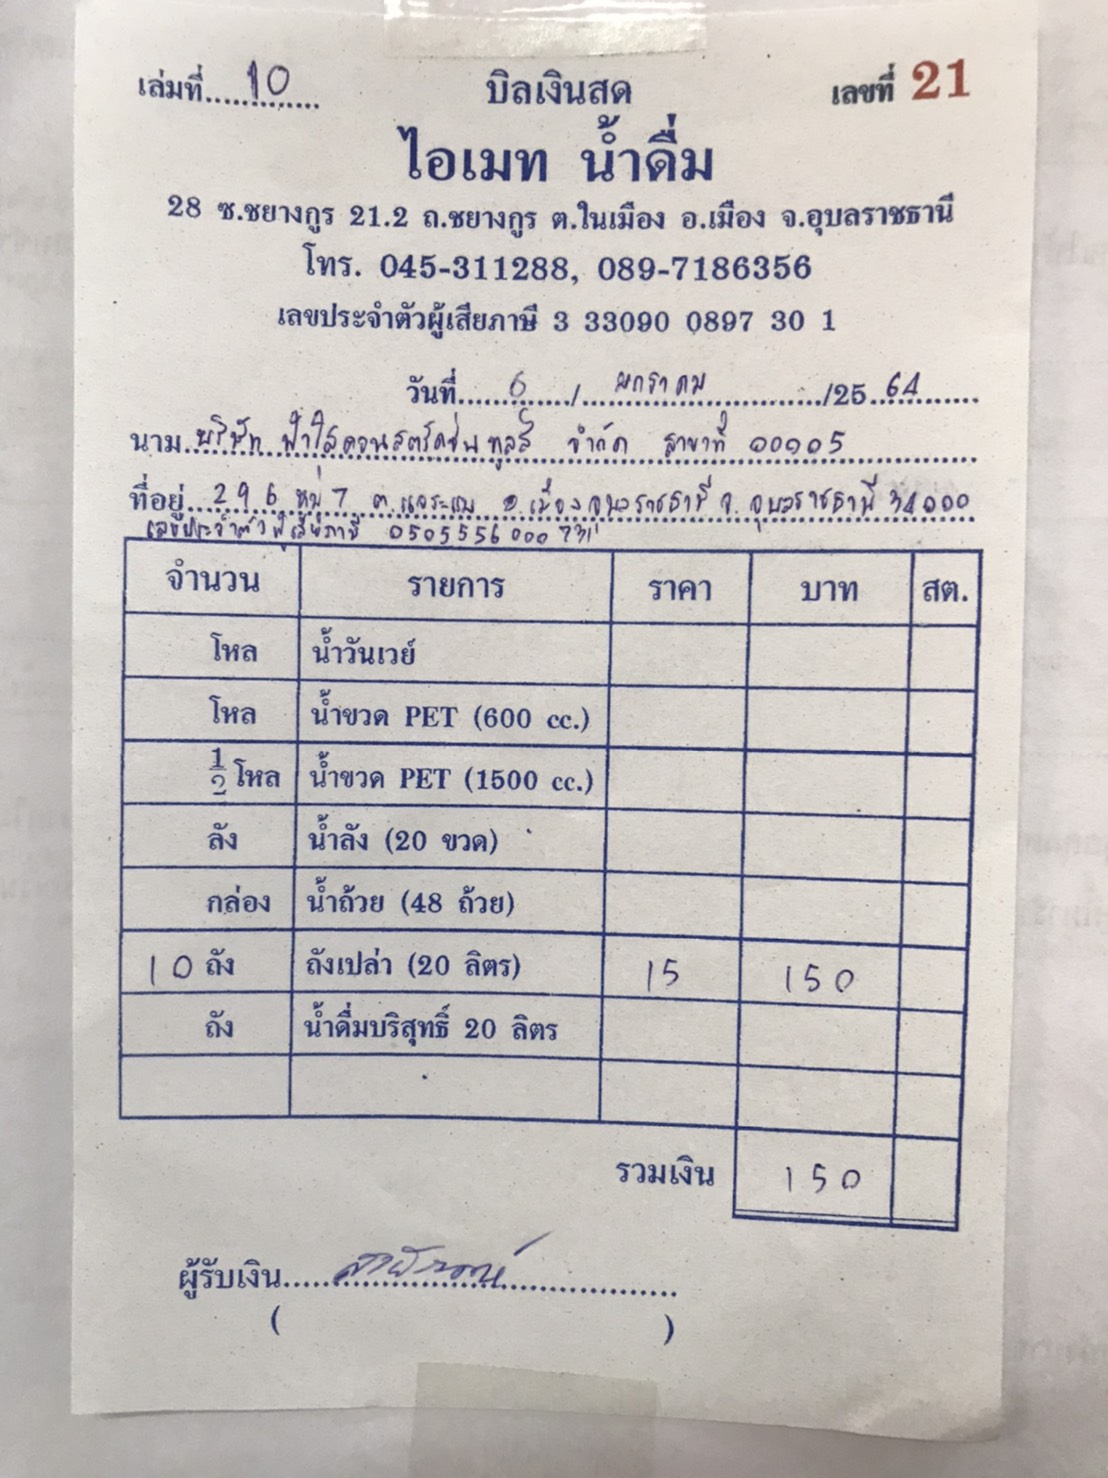 เล่มที่ 10 บิลเงินสด เลขที่ 21
ไอเมท น้ำดื่ม
28 ซ.ชยางกูร 21.2 ถ.ชยางกูร ต.ในเมือง อ.เมือง จ.อุบลราชธานี
โทร. 045-311288, 089-7186356
เลขประจำตัวผู้เสียภาษี 3 33090 0897 30 1
วันที่ 6 / มกราคม /25 64
นาม บริษัท ฟ้าใสคอนสตรัคชั่น ทูลส์ จำกัด สาขาที่ 00005
ที่อยู่ 296 หมู่ 7 ต.แจระแม อ.เมืองอุบลราชธานี จ.อุบลราชธานี 34000
เลขประจำตัวผู้เสียภาษี 0505556000731
จำนวน รายการ ราคา บาท สต.
โหล น้ำวันเวย์
โหล น้ำขวด PET (600 cc.)
1/2 โหล น้ำขวด PET (1500 cc.)
ลัง น้ำลัง (20 ขวด)
กล่อง น้ำถ้วย (48 ถ้วย)
10 ถัง ถังเปล่า (20 ลิตร) 15 150
ถัง น้ำดื่มบริสุทธิ์ 20 ลิตร
รวมเงิน 150
ผู้รับเงิน
( )